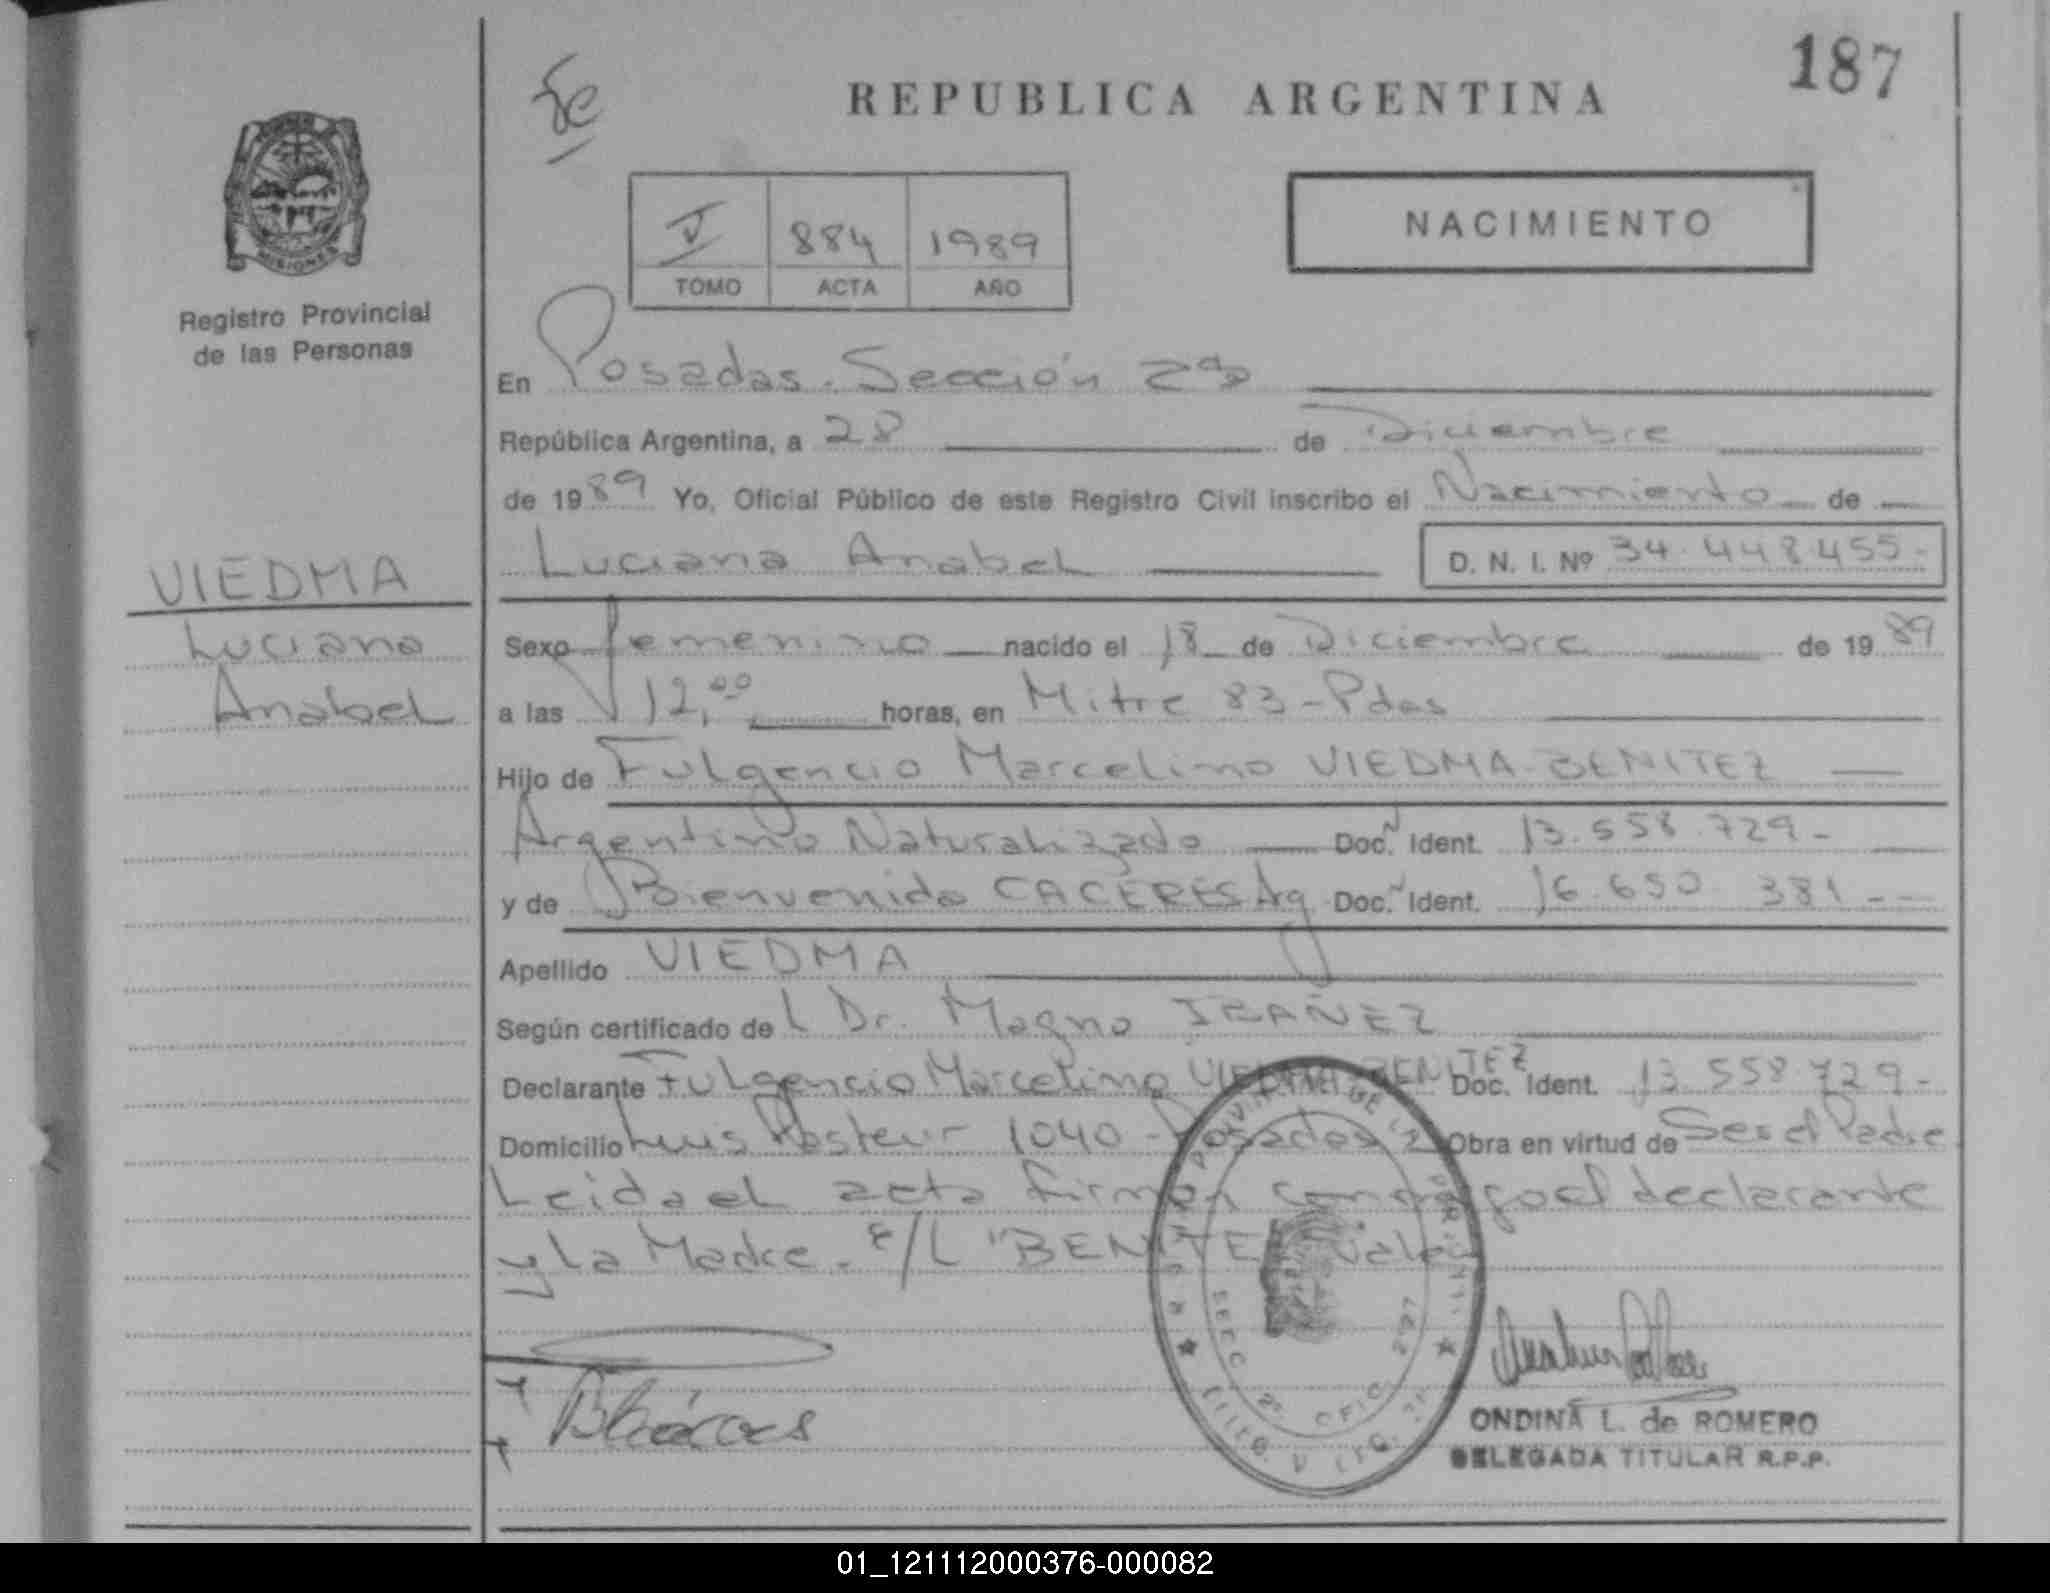 187
Fe
REPUBLICA ARGENTINA
MISIONES
Registro Provincial
de las Personas
V 884 1989
TOMO ACTA AÑO
NACIMIENTO
En Posadas. Sección 2da
República Argentina, a 28 de Diciembre
de 1989 Yo, Oficial Público de este Registro Civil inscribo el Nacimiento de
Luciana Anabel D. N. I. Nº 34.448.455.-
VIEDMA
Luciana
Anabel
Sexo femenino nacido el 18 de Diciembre de 1989
a las 12,00 horas, en Mitre 83-Pdas
Hijo de Fulgencio Marcelino VIEDMA-BENITEZ
Argentino Naturalizado Doc. Ident. 13.558.729-
y de Bienvenida CACERES Arg Doc. Ident. 16.650.381--
Apellido VIEDMA
Según certificado del Dr. Magno IBAÑEZ
Declarante Fulgencio Marcelino VIEDMA BENITEZ Doc. Ident. 13.558.729-
Domicilio Luis Pasteur 1040-Posadas Obra en virtud de Ser el Padre
Leida el acta firman conmigo el declarante
y la Madre. E/L "BENITEZ" vale
SECC 2ª OFIC
ONDINA L. de ROMERO
DELEGADA TITULAR R.P.P.
01_121112000376-000082